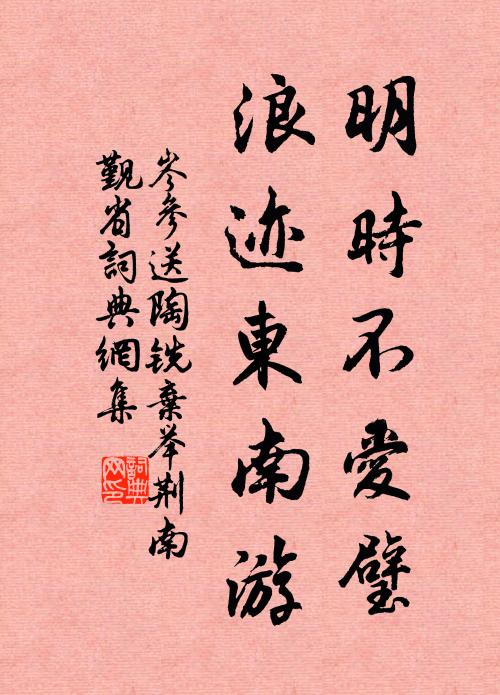 明時不愛璧
浪迹東南游
岑參送陶銑棄举荆南
覲省詞典網集
詞典
网印